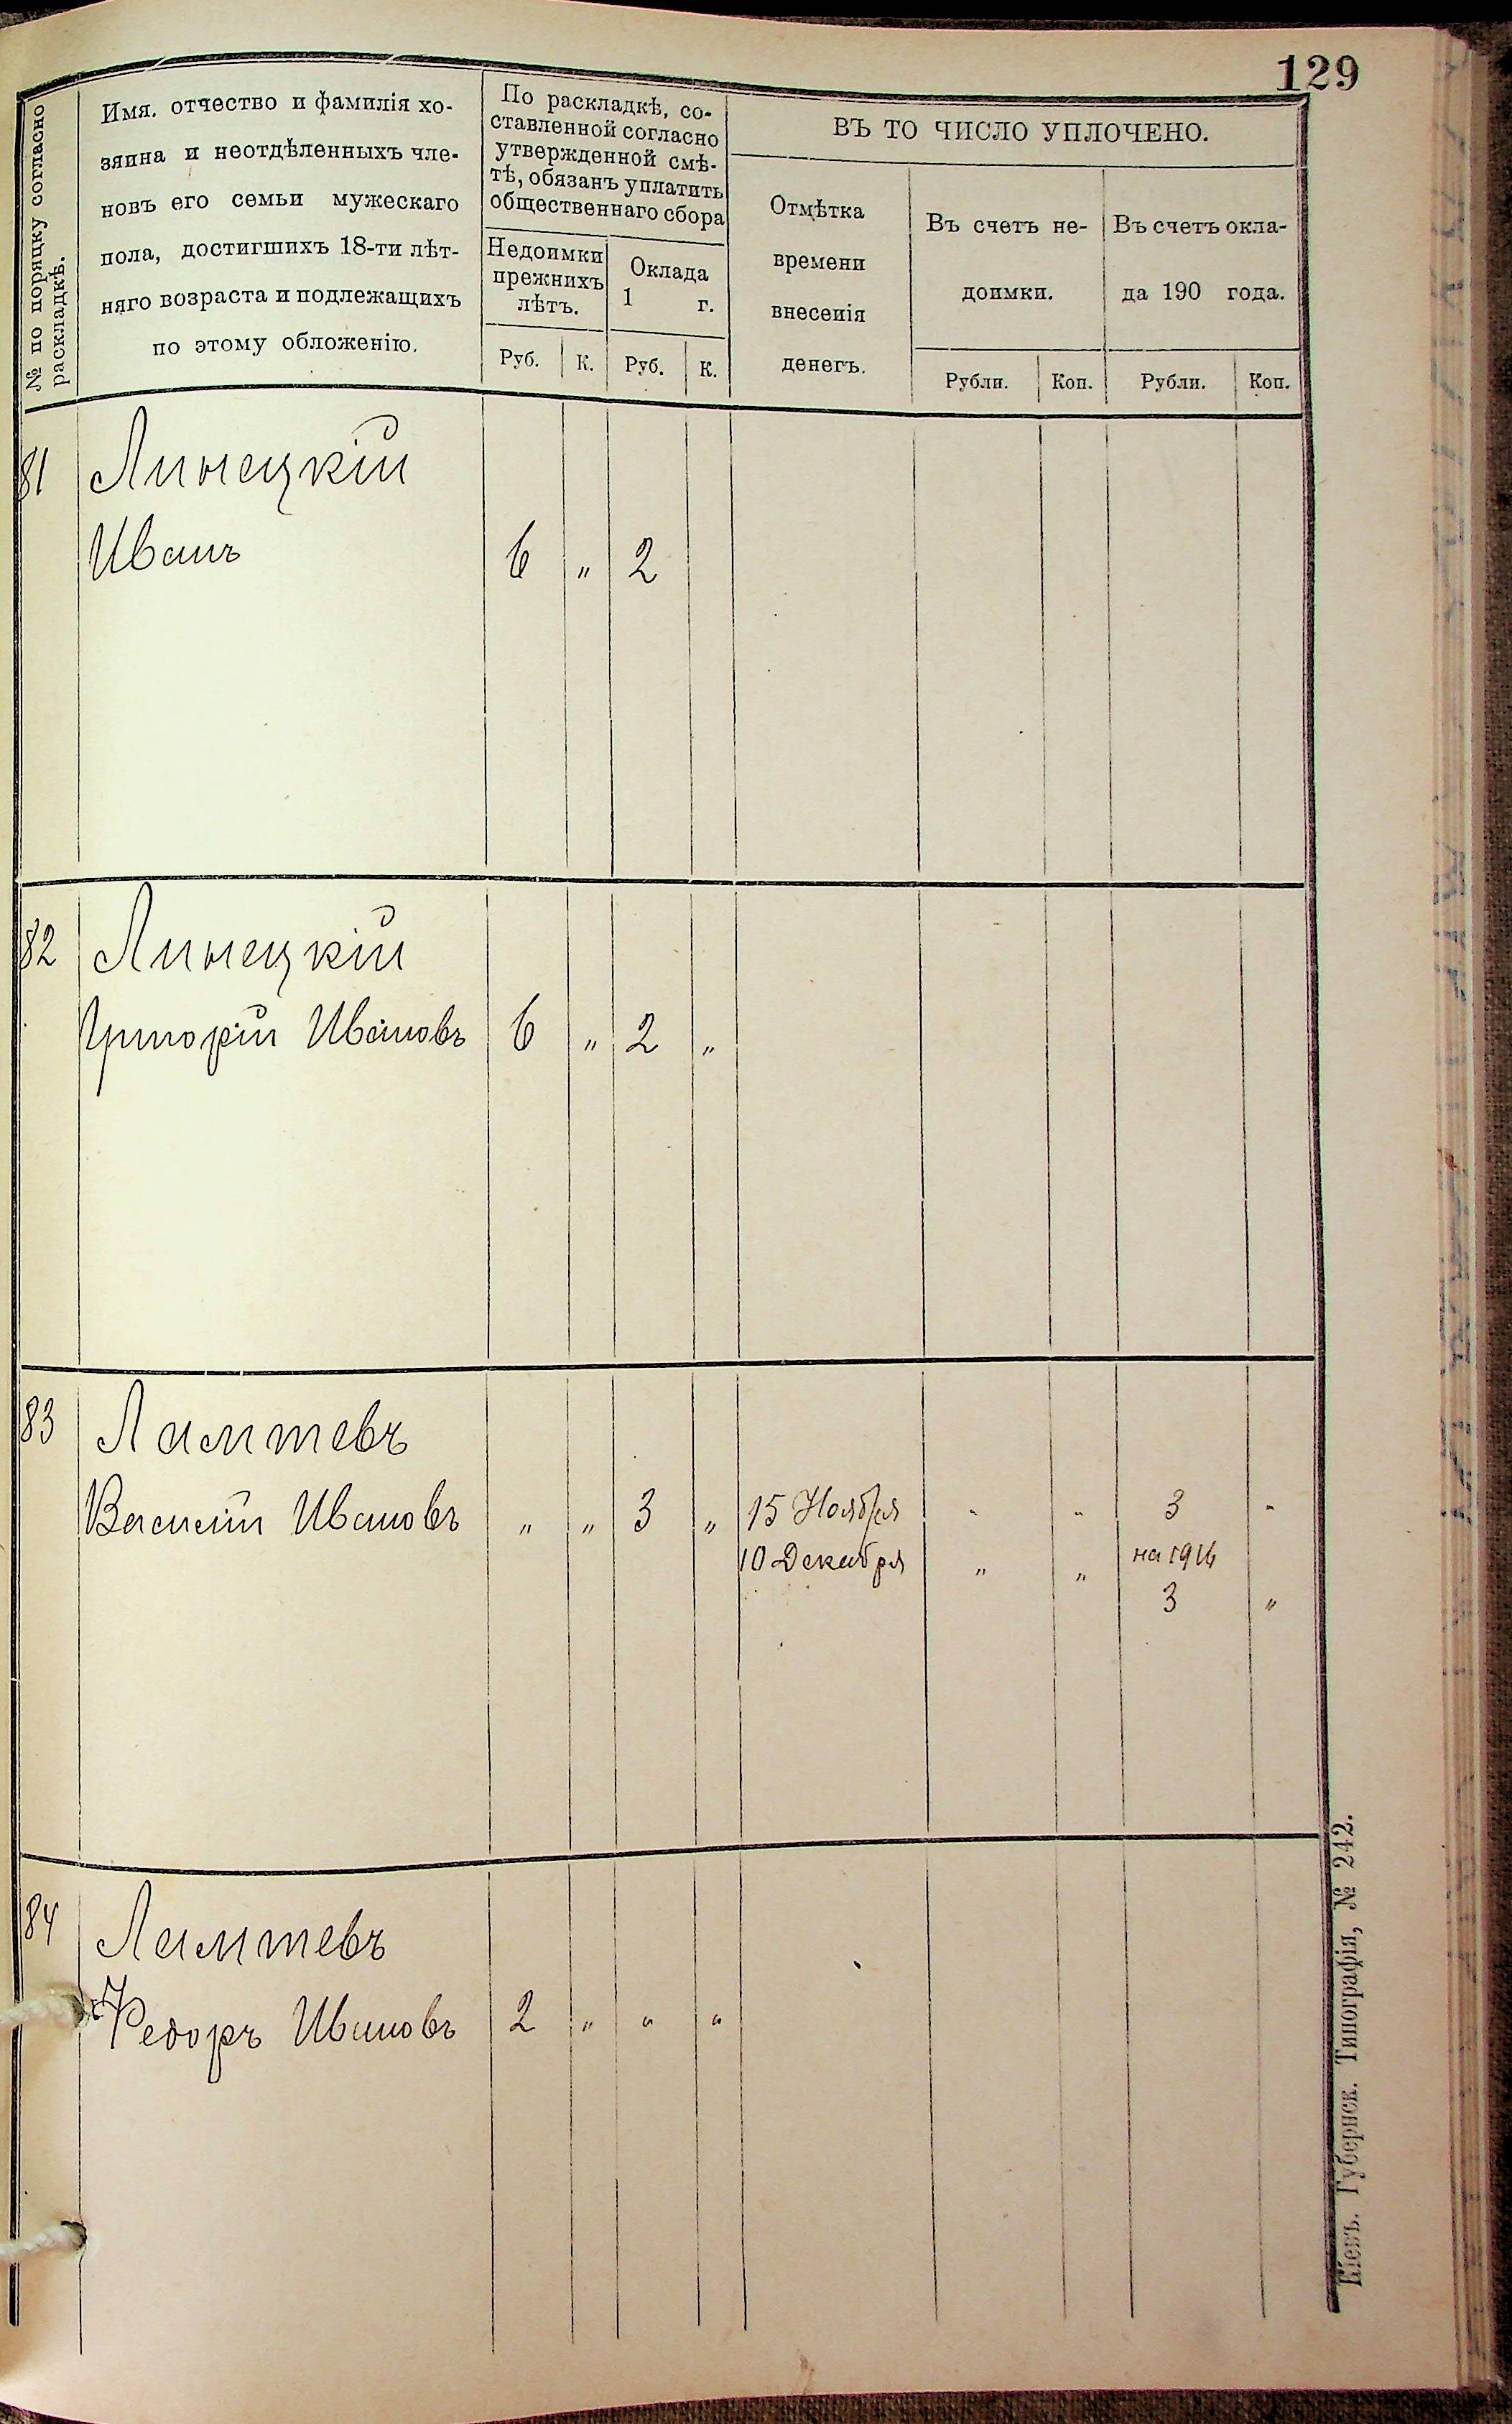 129
№ по порядку согласно
раскладкѣ.
Имя, отчество и фамилія хо-
зяина и неотдѣленныхъ чле-
новъ его семьи мужескаго
пола, достигшихъ 18-ти лѣт-
няго возраста и подлежащихъ
по этому обложенію.
По раскладкѣ, со-
ставленной согласно
утвержденной смѣ-
тѣ, обязанъ уплатить
общественнаго сбора
Недоимки
прежнихъ
лѣтъ.
Руб. К.
Оклада
1 г.
Руб. К.
ВЪ ТО ЧИСЛО УПЛОЧЕНО.
Отмѣтка
времени
внесенія
денегъ.
Въ счетъ не-
доимки.
Рубли. Коп.
Въ счетъ окла-
да 190 года.
Рубли. Коп.
81 Линецкій
Иванъ 6 „ 2
82 Линецкій
Григорій Ивановъ 6 „ 2 „
83 Лаптевъ
Василій Ивановъ „ „ 3 „ 15 Ноября „ „ 3 „
10 Декабря „ „ на 1914
3 „
84 Лаптевъ
Федоръ Ивановъ 2 „ „ „
Кіевъ. Губернск. Типографія, № 242.